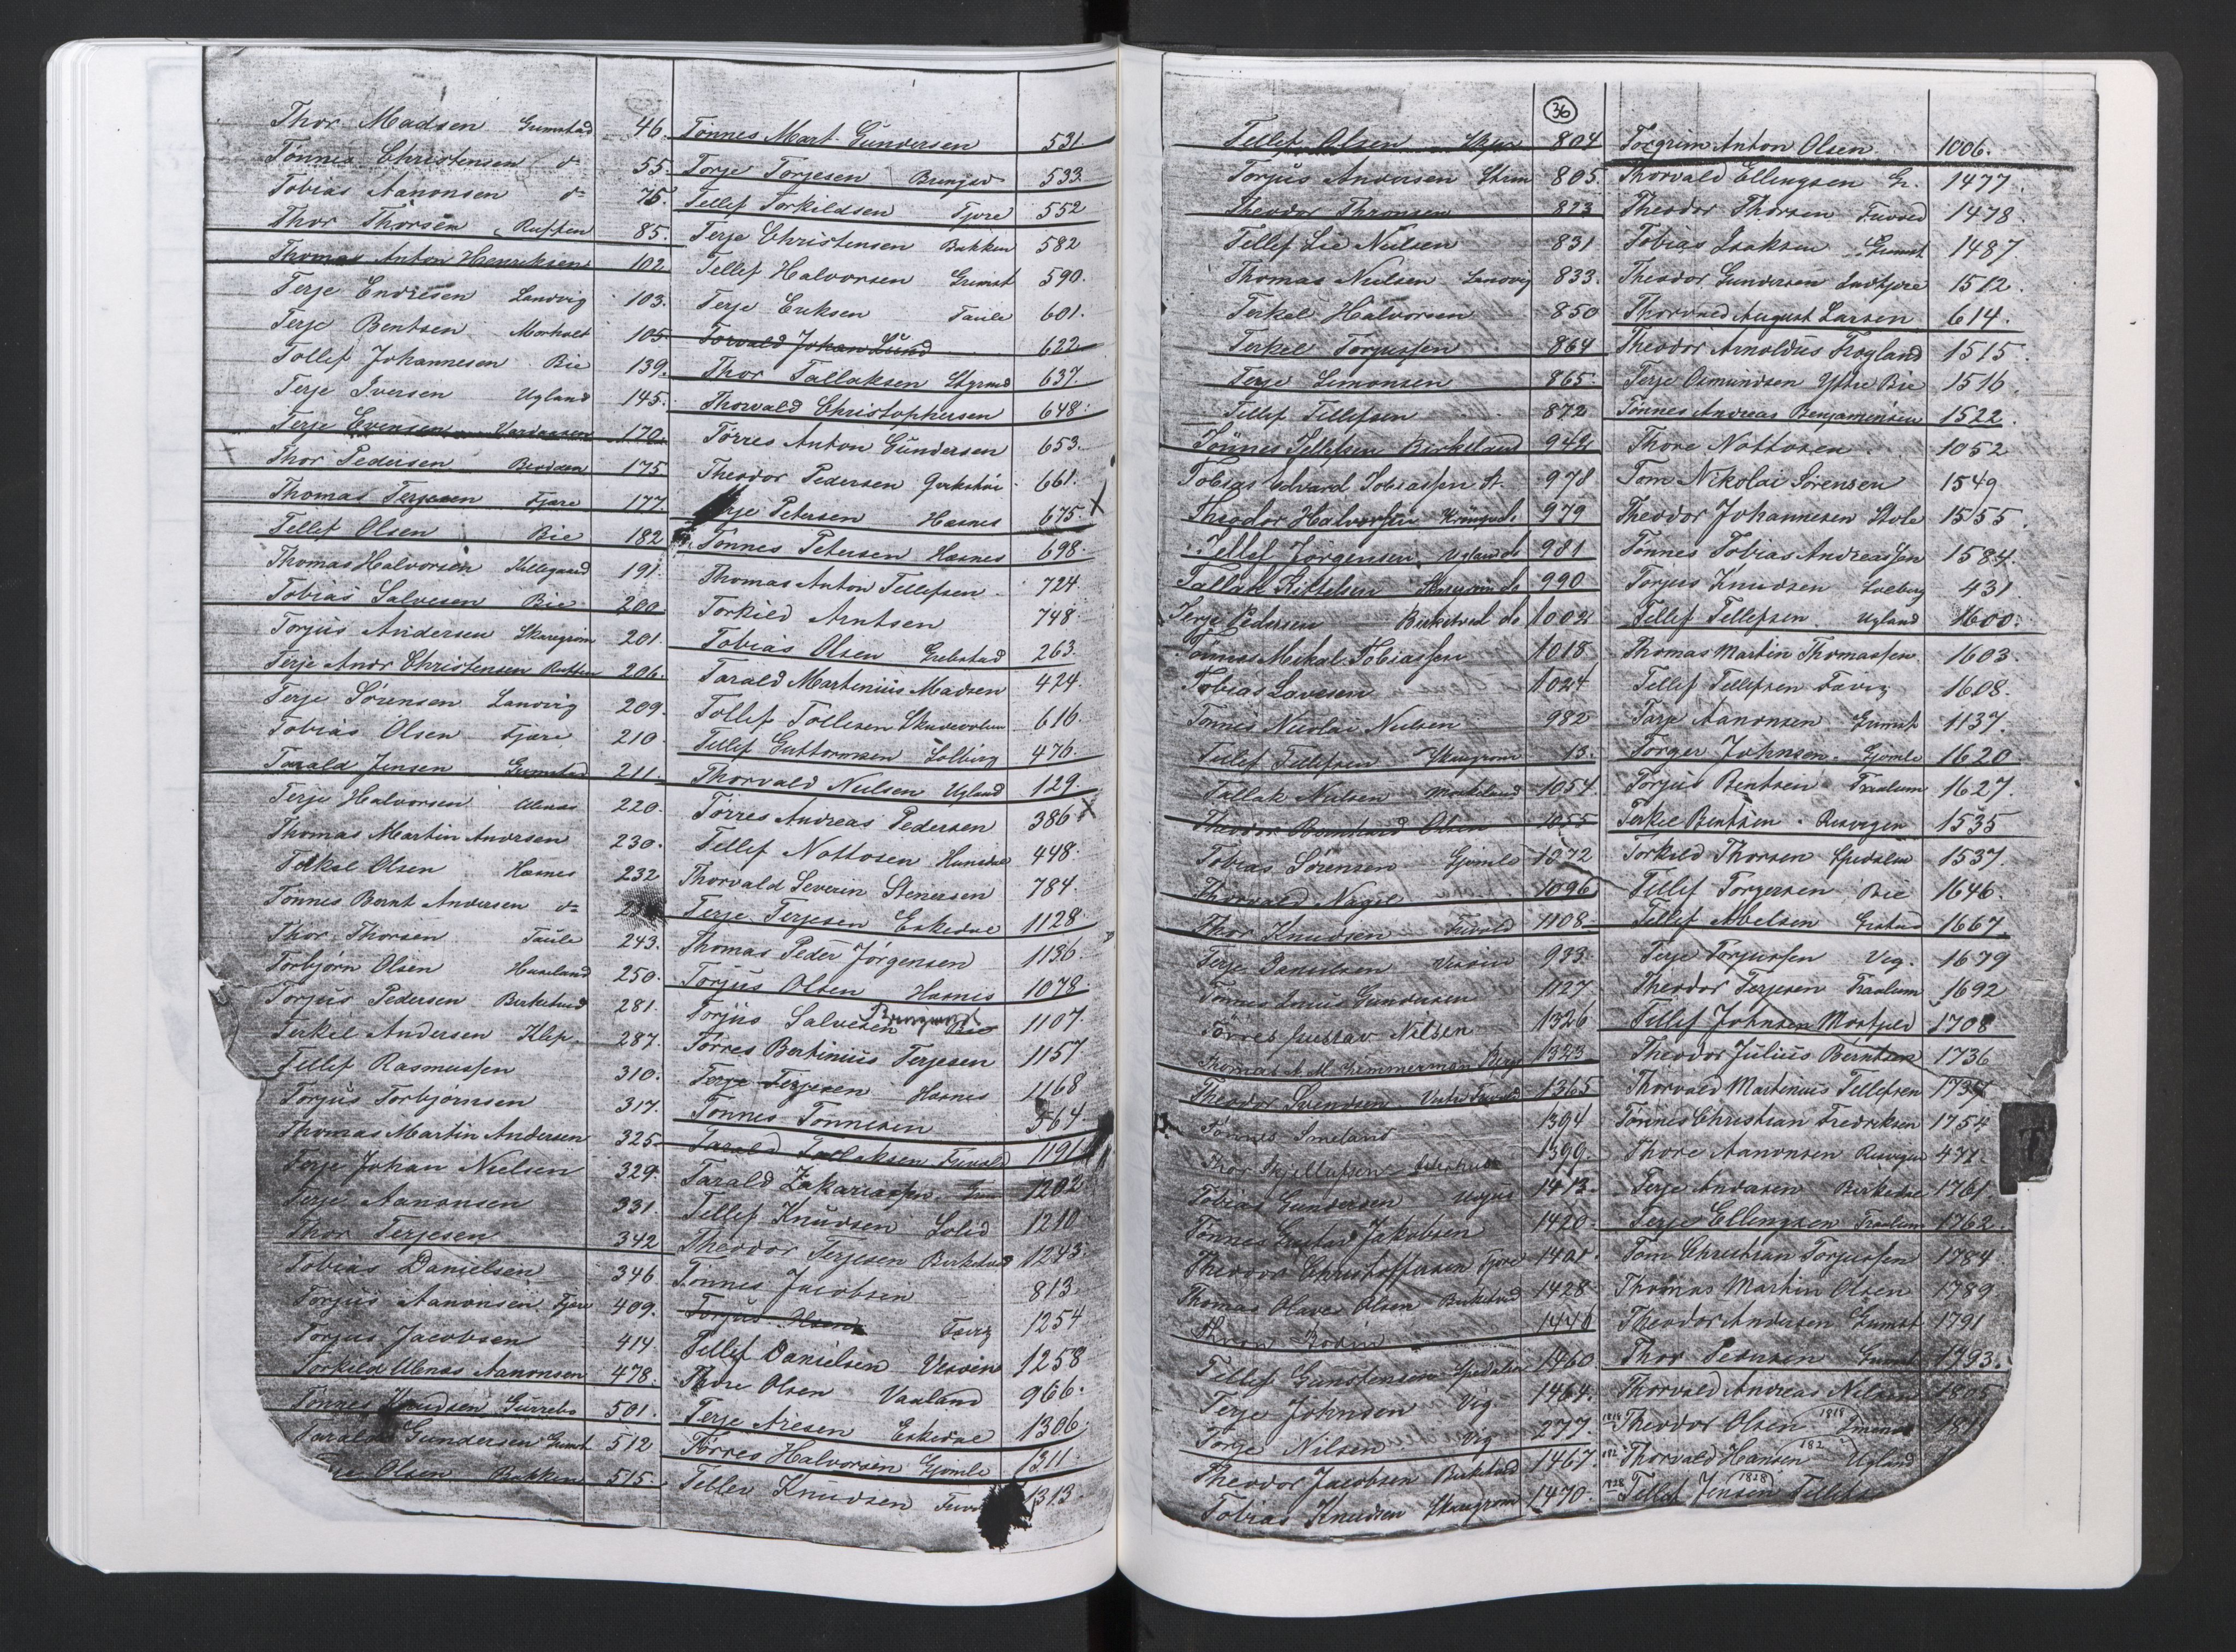 Thor Madsen Grimstad 46.
Tönnes Christensen do 55.
Tobias Aanonsen do 75.
Thor Thorsen Ruften 85.
Thomas Anton Henriksen 102
Terje Endresen Landvig 103.
Terje Bentsen Morholt 105
Tollef Johannesen Bie 139.
Terje Iversen Ugland 145.
Terje Evensen 170.
Thor Pedersen 175
Thomas Terjesen Fjære 177.
Tellef Olsen Bie 182
Thomas Halvorsen Killegaard 191.
Tobias Salvesen Bie 200
Torjus Andersen Skaregrøm 201.
Terje Andr Christensen Ruften 206.
Terje Sörensen Landvig 209.
Tobias Olsen Fjære 210
Tarald Jensen Grimstad 211.
Terje Halvorsen Ulenæs 220.
Thomas Martin Andersen 230.
Terkel Olsen Hæsnes 232
Tönnes Bernt Andersen do
Thor Thorsen Taule 243.
Torbjörn Olsen 250.
Torjus Pedersen Birketvedt 281.
Terkel Andersen Klep. 287.
Tellef Rasmussen 310.
Torjus Torbjörnsen 317.
Thomas Martin Andersen 325
Terje Johan Nielsen 329
Terje Aanonsen 331
Thor Terjesen 342
Tobias Danielsen 346
Torjus Aanonsen Fjære 409.
Torjus Jacobsen 414
Torkild Ulenæs Aanonsen 478.
Tönnes Knudsen Gurrebo 501.
Tarald Gundersen Grimst 512
Olsen Bakken 515
Tönnes Mart. Gundersen 531.
Torje Torjesen Bringsv 533
Tellef Torkildsen Fjære 552
Terje Christensen Bakken 582
Tellef Halvorsen Grimst 590.
Terje Eriksen Taule 601.
Torvald Johan Lund 622
Thor Tallaksen Styrmd 637.
Thorvald Christophersen 648.
Törres Anton Gundersen 653.
Theodor Pedersen 661.
Terje Petersen Hæsnes 675. X
Tönnes Petersen Hæsnes 698.
Thomas Anton Tellefsen 724
Torkild Arntsen 748.
Tobias Olsen Grebstad 263.
Tarald Martinius Madsen 424
Tollef Tollesen 616.
Tellef Guttormsen Solberg 476.
Thorvald Nielsen Ugland 129.
Törres Andreas Pedersen 386 X
Tellef Nottosen 448.
Thorvald Severin Stenersen 784.
Terje Terjesen Eskedal 1128.
Thomas Peder Jörgensen 1136.
Torjus Olsen Hæsnes 1078
Torjus Salvesen Bringsværd 1107.
Törres Bertinius Terjesen 1157
Terje Terjesen Hæsnes 1168
Tönnes Tönnesen 564
Tarald Tallaksen Frivold 1191
Tarald Zakariassen 1202
Tellef Knudsen 1210
Theodor Terjesen Birketved 1243.
Tönnes Jacobsen 813
Torjus Olsen 1254
Tellef Danielsen Vessøen 1258
Thore Olsen Vaaland 966.
Terje Aresen Eskedal 1306.
Törres Halvorsen Gjømle 1311
Tellev Knudsen 1313.
36
Tellef Olsen 804
Torjus Andersen Strøm 805.
Theodor Thronsen 823
Tellef Lie Nielsen 831
Thomas Nielsen Landvig 833.
Terkel Halvorsen 850
Terkel Torjussen 864
Terje Simonsen 865.
Tellef Tellefsen 872
Tönnes Tellefsen Birkeland 942
Tobias Edvard Tobiassen 978
Theodor Halvorsen 979
Tellef Jörgensen Ugland 981
Tallak Kittelsen 990
Terje Pedersen Birketved 1002
Tönnes Mikal Tobiassen 1018
Tobias Lavesen 1024
Tönnes Nicolai Nielsen 982
Tellef Tellefsen 13.
Tallak Nielsen 1054
Theodor Bernhard Olsen 1055
Tobias Sörensen Gjømle 1072
Thorvald Nagel 1096
Thor Knudsen Frivold 1108
Terje Danielsen Vessøen 933.
Tönnes Gundersen 1127
Törres Gustav Nilsen 1326
Thomas A. M. Zimmerman 1323
Theodor Svendsen 1365
Tönnes Smeland 1394
Thor 1399.
Tobias Gundersen 1413.
Tönnes Gustav Jakobsen 1420
Theodor Christoffersen Fjære 1401.
Thomas Olaves Olsen Birketved 1428
1446
Tellef Gunstensen 1460
Terje Johnsen Vig 1464.
Torje Nilsen Vig 277.
Theodor Jacobsen Birketved 1467.
Tobias Knudsen Skaregrøm 1470.
Torgrim Anton Olsen 1006.
Thorvald Ellingsen Gr. 1477.
Theodor Thorsen Frivold 1478.
Tobias Isaksen Grimst 1487.
Theodor Gundersen Indtjore 1512.
Thorvald August Larsen 614.
Theodor Arnoldus Frogland 1515.
Terje Osmundsen Ytre Bie 1516.
Tönnes Andreas Benjaminsen 1522.
Thore Nottosen 1052
Tom Nikolai Sörensen 1549
Theodor Johannesen Stole 1555.
Tönnes Tobias Andreassen 1584.
Torjus Knudsen 431
Tellef Tellefsen Ugland 1600.
Thomas Martin Thomassen 1603.
Tellef Tellefsen 1608.
Tarje Aanonsen Grimst 1137.
Torger Johnsen Gjømle 1620
Torjus Bentsen Trælum 1627.
Terkel Bentsen Resvigen 1535
Torkild Thorsen Spedalen 1537.
Tellef Torgersen Bie 1646.
Tellef Abelsen 1667.
Terje Torjussen Vig. 1679
Theodor Terjesen Trælum 1692
Tellef Johnsen Morfjeld 1708
Theodor Julius Berntsen 1736
Thorvald Martinius Tellefsen 1737
Tönnes Christian Fredriksen 1754.
Thore Aanonsen Resvigen 471.
Terje Andersen Birkedal 1761.
Terje Ellingsen Trælum 1762.
Tom Christian Torjussen 1784.
Thomas Martin Olsen 1789
Theodor Andersen Grimst 1791
Thor Pedersen Grimst 1793.
Thorvald Andreas Nilsen 1805
Theodor Olsen 1818
Thorvald Hansen Ugland 182
1828 Tellef Jensen 1828